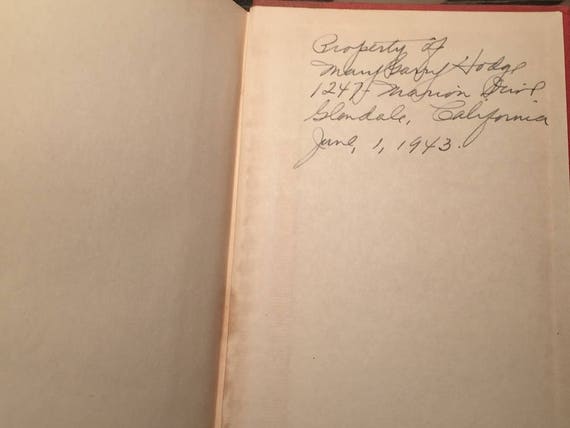 Property of
Mary Garry Hodge
1247 Marion Drive
Glendale, California
June, 1, 1943.